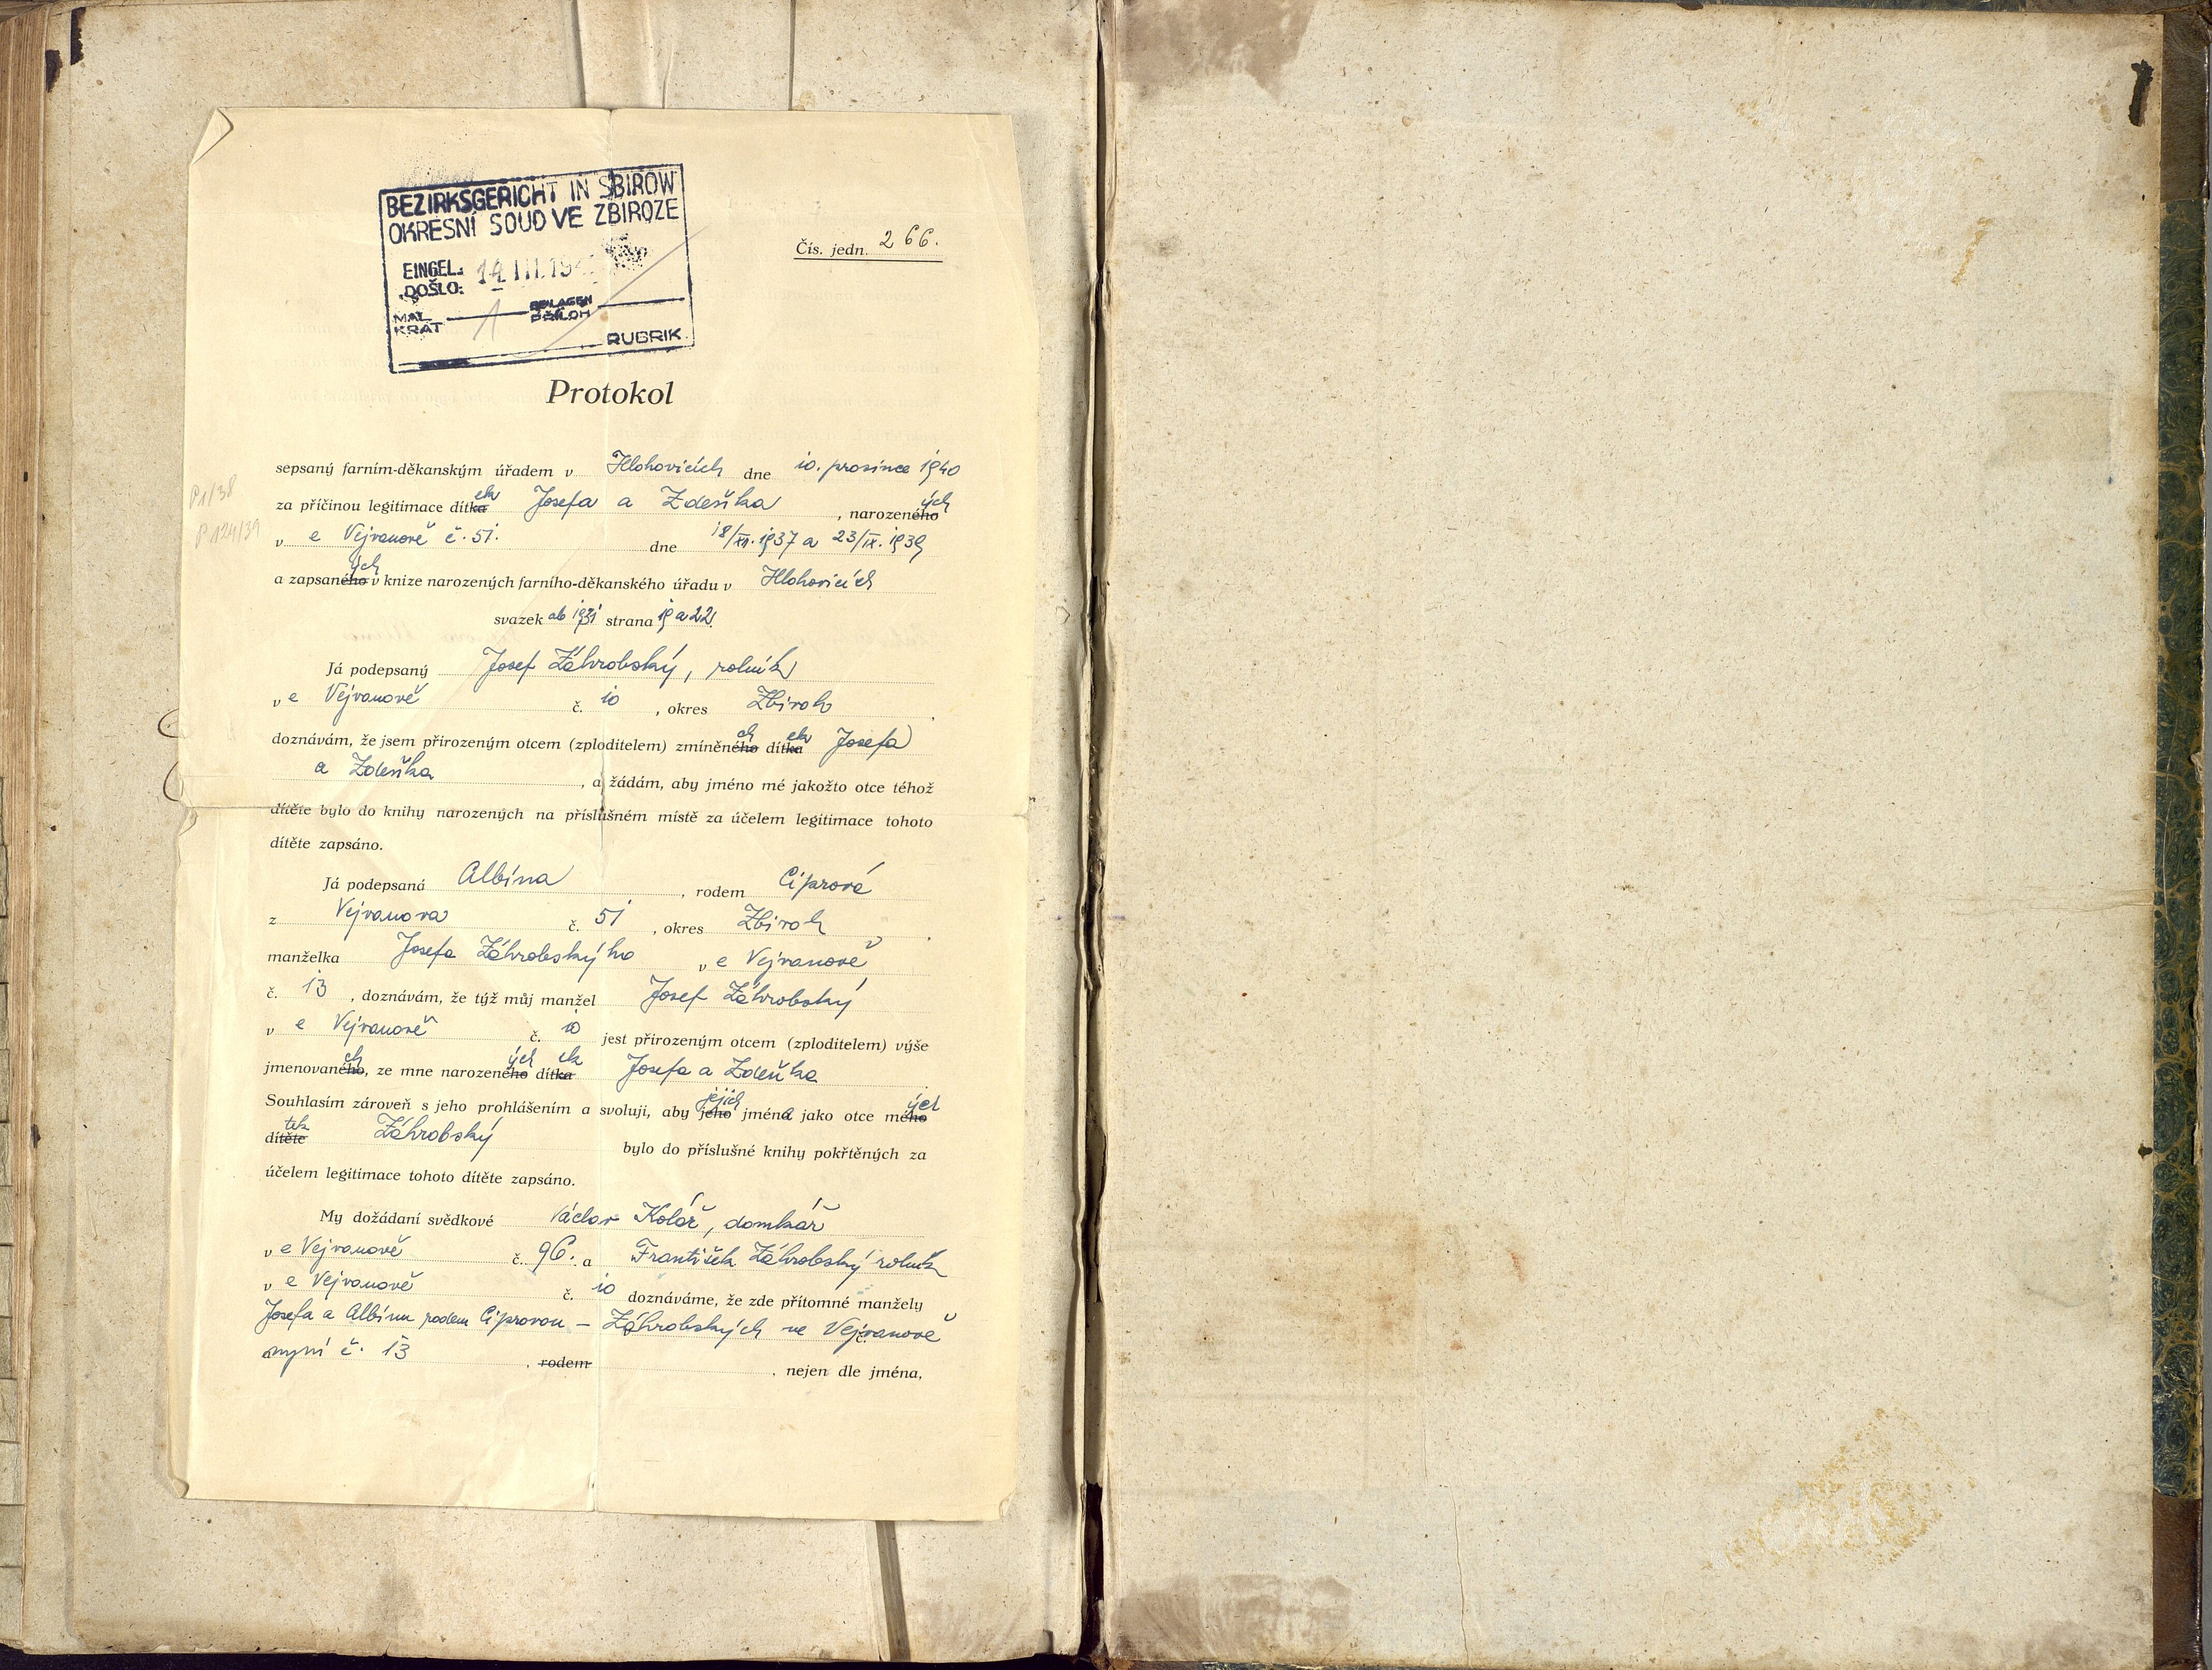 BEZIRKSGERICHT IN SBIROW
OKRESNÍ SOUD VE ZBIROZE
EINGEL.
DOŠLO: 14 III. 194
MAL
KRÁT 1 BEILAGEN
PŘÍLOH
RUBRIK
Čís. jedn. 266.
Protokol
sepsaný farním-děkanským úřadem v Hlohovicích dne 10. prosince 1940
P 1/38
za příčinou legitimace dítkaek Josefa a Zdeňka, narozenéhoých
P 124/39
v e Vejvanově č. 51. dne 18/XI. 1937 a 23/IX. 1939
a zapsanéhoých v knize narozených farního-děkanského úřadu v Hlohovicích
svazek ab 1931 strana 19 a 22.
Já podepsaný Josef Záhrobský, rolník
v e Vejvanově č. 10, okres Zbiroh
doznávám, že jsem přirozeným otcem (zploditelem) zmíněnéhoch dítkaek Josefa
a Zdeňka, a žádám, aby jméno mé jakožto otce téhož
dítěte bylo do knihy narozených na příslušném místě za účelem legitimace tohoto
dítěte zapsáno.
Já podepsaná Albína, rodem Ciprová
z Vejvanova č. 51, okres Zbiroh
manželka Josefa Záhrobského v e Vejvanově
č. 13, doznávám, že týž můj manžel Josef Záhrobský
v e Vejvanově č. 10 jest přirozeným otcem (zploditelem) výše
jmenovanéhoch, ze mne narozenéhoých dítkaek Josefa a Zdeňka
Souhlasím zároveň s jeho prohlášením a svoluji, aby jehojejich jména jako otce méhoých
dítětetek Záhrobský bylo do příslušné knihy pokřtěných za
účelem legitimace tohoto dítěte zapsáno.
My dožádaní svědkové Václav Kolář, domkář
v e Vejvanově č. 96. a František Záhrobský rolník
v e Vejvanově č. 10 doznáváme, že zde přítomné manžely
Josefa a Albínu rodem Ciprovou – Záhrobských ve Vejvanově
nyní č. 13, rodem, nejen dle jména,